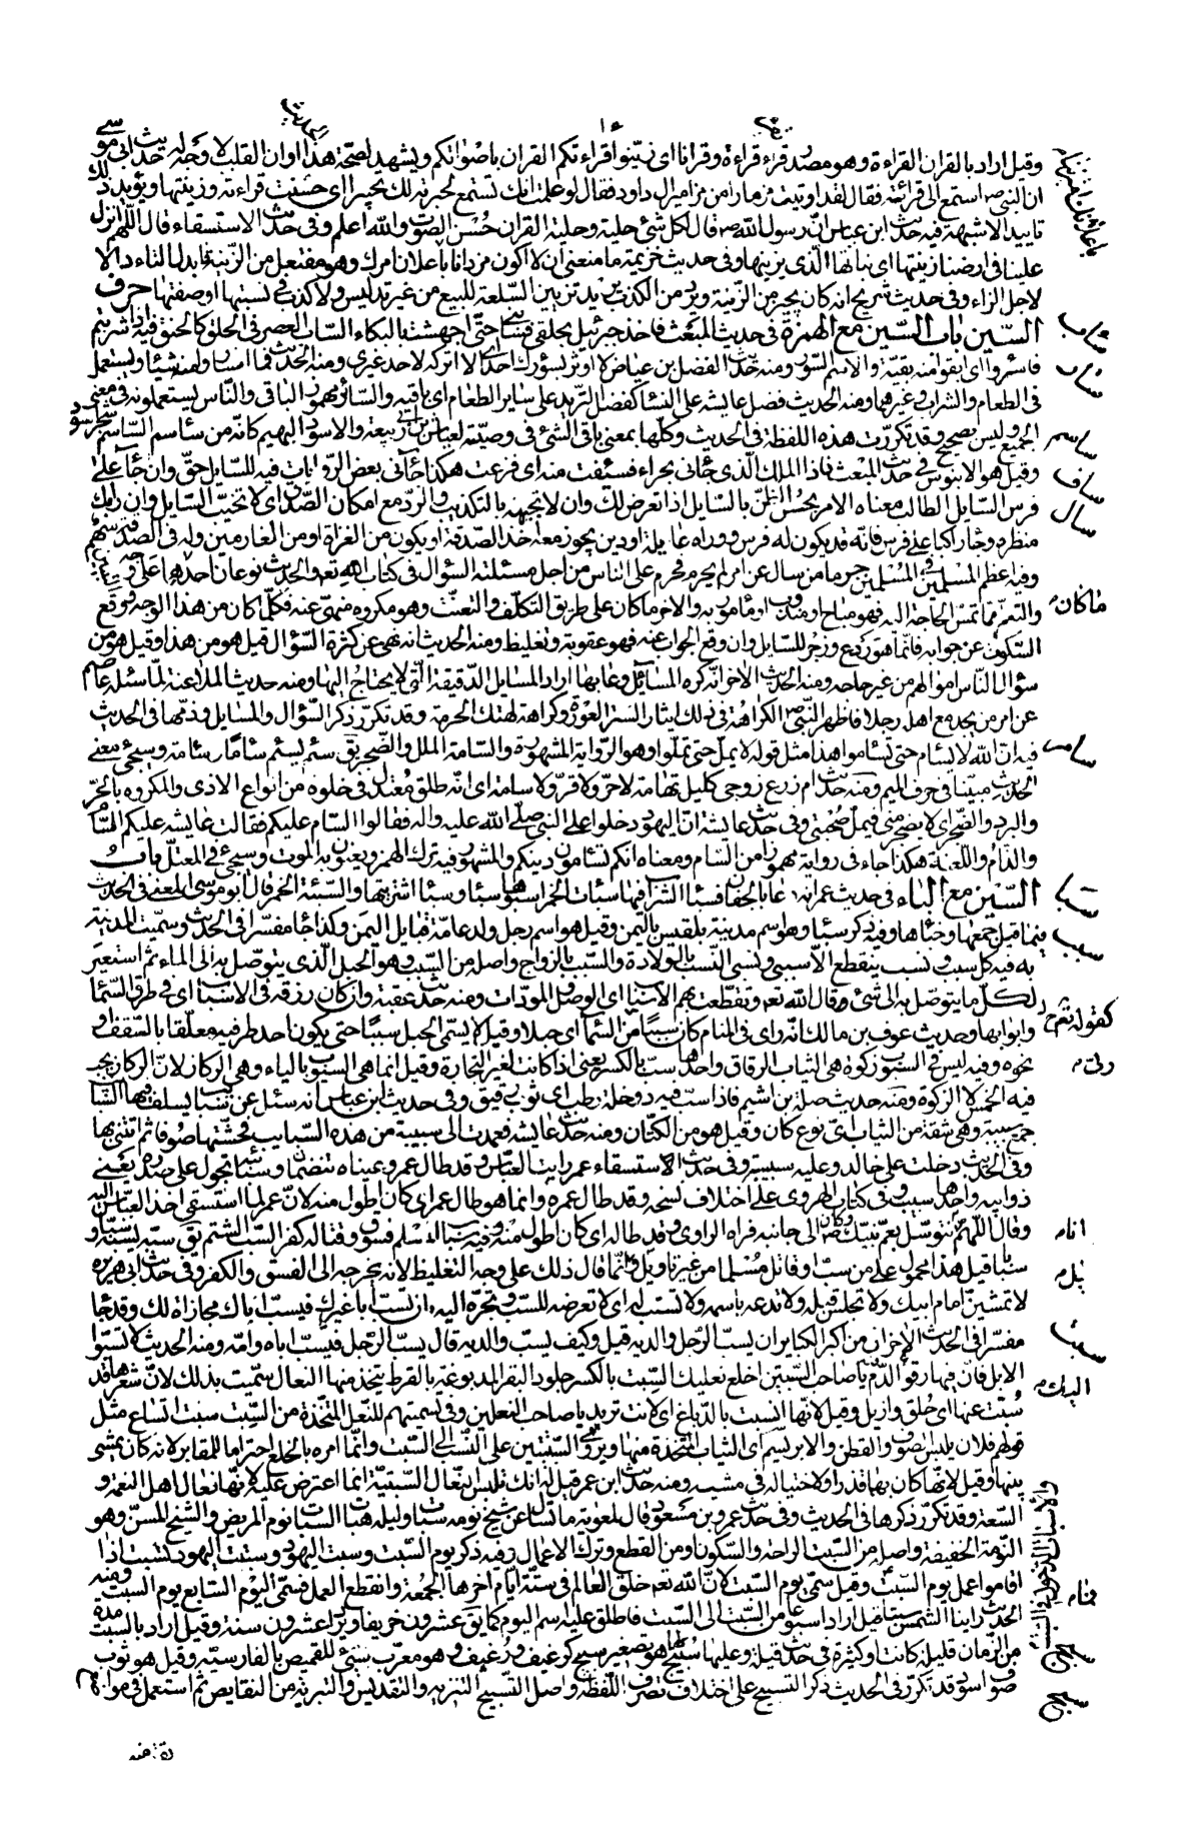 وقيل اراد بالقران القراءة وهو مصدر قراء قراءة وقرانا اى زينوا قراءتكم القران باصواتكم ويشهد لصحة هذا وان القلب لا وجه له حديث ابى موسى
ان النبى استمع الى قرائته فقال لقد اوتيت مزمارا من مزامير ال داود فقال لو علمت انك تستمع لحبرته لك تحبيرا اى حسنت قراءته وزينتها ويؤيد ذلك
تاييدا لا شبهة فيه حديث ابن عباس ان رسول الله قال لكل شئ حلية وحلية القران حسن الصوت والله اعلم وفى حديث الاستسقاء قال اللهم انزل
علينا فى ارضنا زينتها اى نباتها الذى يزينها وفى حديث خزيمة ما منعنى ان لا اكون مزدانا باعلان امرك وهو مفتعل من الزينة فابدل التاء دالا
لاجل الزاء وفى حديث شريح انه كان يجيز من الزينة ويرد من الكذب يريد تزيين السلعة للبيع من غير تدليس ولا كذب فى نسبتها او صفتها حرف
السين باب السين مع الهمزة فى حديث المبعث فاخذ جبرئيل بحلقى فسأبنى حتى اجهشت بالبكاء الساب العصر فى الحلق كالخنق فيه اذا شربتم
فاسئروا اى ابقوا منه بقية والاسم السؤر ومنه حديث الفضل بن عباس لا اوثر بسؤرك احدا اى لا اتركه لاحد غيرى ومنه الحديث فما اساروا منه شيئا ويستعمل
فى الطعام والشراب وغيرهما ومنه الحديث فضل عايشه على النساء كفضل الثريد على ساير الطعام اى باقيه والسائر مهموز الباقى والناس يستعملونه فى معنى
الجميع وليس بصحيح وقد تكررت هذه اللفظة فى الحديث وكلها بمعنى باقى الشئ فى وصيته لعياش بن ابى ربيعة والاسود البهيم كانه من ساسم الساسم شجر اسود
وقيل هو الابنوس فى حديث المبعث فاذا الملك الذى جائنى بحراء فسئفت منه اى فزعت هكذا جاء فى بعض الروايات فيه للسايل حق وان جاء على
فرس السايل الطالب معناه الامر بحسن الظن بالسايل اذا تعرض لك وان لا تجبهه بالتكذيب والرد مع امكان الصدق اى لا تخيب السايل وان رابك
منظره وجاء راكبا على فرس فانه قد يكون له فرس ووراه عايلة او دين يجوز معه اخذ الصدقة او يكون من الغزاة او من الغارمين وله فى الصدقة سهم
وفيه اعظم المسلمين فى المسلمين جرما من سال عن امر لم يحرم فحرم على الناس من اجل مسئلته السؤال فى كتاب الله تعم والحديث نوعان احدهما على وجه
والتعلم مما تمس الحاجة اليه فهو مباح او مندوب او مامور به والاخر ما كان على طريق التكلف والتعنت وهو مكروه منهى عنه فكلما كان من هذا الوجه فوقع
السكوت عن جوابه فانما هو ردع وزجر للسايل وان وقع الجواب عنه فهو عقوبة وتغليظ ومنه الحديث انه نهى عن كثرة السؤال قيل هو من هذا وقيل هو من
سؤال الناس اموالهم من غير حاجة ومنه الحديث الاخر انه كره المسايل وعابها اراد المسايل الدقيقة التى لا يحتاج اليها ومنه حديث الملاعنة لما سئله عاصم
عن امر من يجد مع اهله رجلا فاظهر النبى الكراهة فى ذلك ايثارا لستر العورة وكراهة لهتك الحرمة وقد تكرر ذكر السؤال والمسايل وذمها فى الحديث
فيه ان الله لا يسئم حتى تسئموا هذا مثل قوله لا يمل حتى تملوا وهو الرواية المشهورة والسامة الملل والضجر يق سئم يسئم ساما وسامة وسيجئ معنى
الحديث مبينا فى حرف الميم ومنه حديث ام زرع زوجى كليل تهامة لا حر ولا قر ولا سامة اى انه طلق معتدل فى خلوه من انواع الاذى والمكروه بالحر
والبرد والضجر اى لا يضجر منى فيمل صحبتى وفى حديث عايشة ان اليهود دخلوا على النبى صلى الله عليه واله فقالوا السام عليكم فقالت عايشه عليكم السام
والذام واللعنة هكذا جاء فى رواية مهموزا من السام ومعناه انكم تسامون دينكم والمشهور فيه ترك الهمز ويعنون به الموت وسيجئ فى المعتل باب
السين مع الباء فى حديث عمر انه دعا بالجفان فسبأ الشراب فيها سبات الخمر اسبؤها سبأ وسباء اشتريتها والسبيئة الخمر قال ابو موسى المعنى فى الحديث
فيما قيل جمعها وخباها وفيه ذكر سبا وهو اسم مدينة بلقيس باليمن وقيل هو اسم رجل ولد عامة قبايل اليمن وكذا جاء مفسرا فى الحديث وسميت المدينة
به فيه كل سبب ونسب ينقطع الا سببى ونسبى النسب بالولادة والسبب بالزواج واصله من السبب وهو الحبل الذى يتوصل به الى الماء ثم استعير
لكل ما يتوصل به الى شئ وقال الله تعم وتقطعت بهم الاسباب اى الوصل والمودات ومنه حديث عقبة وان كان رزقه فى الاسباب اى فى طرق السماء
وابوابها وحديث عوف بن مالك انه راى فى المنام كان سببا من السماء اى حبلا وقيل لا يسمى الحبل سببا حتى يكون احد طرفيه معلقا بالسقف او
نحوه وفيه ليس فى السبوب زكوة هى الثياب الرقاق واحدها سب بالكسر يعنى اذا كانت لغير التجارة وقيل انما هى السيوب بالياء وهى الركاز لان الركاز يجب
فيه الخمس لا الزكوة ومنه حديث صلة بن اشيم فاذا سب فيه دوخلة رطب اى ثوب رقيق وفى حديث ابن عباس انه سئل عن سبايب يسلف فيها السبايب
جمع سبيبة وهى شقة من الثياب اى نوع كان وقيل هو من الكتان ومنه حديث عايشه فعمدت الى سبيبة من هذه السبايب فحشتها صوفا ثم اتتنى بها
وفى الحديث دخلت على خالد وعليه سبيبة وفى حديث الاستسقاء عمر رايت العباس وقد طال عمر وعيناه تنضمان وسبائبه تجول على صدره يعنى
ذوايبه واحدها سبيب وفى كتاب الهروى على اختلاف نسخه وقد طال عمره وانما هو طال عمر اى كان اطول منه لان عمر لما استسقى اخذ العباس اليه
وقال اللهم انا نتوسل بعم نبيك وكان الى جانبه فراه الراوى وقد طاله اى كان اطول منه وفيه سباب المسلم فسوق وقتاله كفر السب الشتم يق سبه يسبه سبا و
سبابا قيل هذا محمول على من سب او قاتل مسلما من غير تاويل وقيل انما قال ذلك على وجه التغليظ لا انه يخرجه الى الفسق والكفر وفى حديث ابى هريره
لا تمشين امام ابيك ولا تجلس قبله ولا تدعه باسمه ولا تستسب له اى لا تعرضه للسب وتجره اليه بان تسب ابا غيرك فيسب اباك مجازاة لك وقد جاء
مفسرا فى الحديث الاخر ان من اكبر الكباير ان يسب الرجل والديه قيل وكيف يسب والديه قال يسب الرجل فيسب اباه وامه ومنه الحديث لا تسبوا
الابل فان فيها رقوء الدم يا صاحب السبتين اخلع نعليك السبت بالكسر جلود البقر المدبوغة بالقرظ يتخذ منها النعال سميت بذلك لان شعرها قد
سبت عنها اى حلق وازيل وقيل لانها انسبتت بالدباغ اى لانت تريد يا صاحب النعلين وفى تسميتهم للنعل المتخذة من السبت سبت اتساع مثل
قولهم فلان يلبس الصوف والقطن والابريسم اى الثياب المتخذة منها ويروى السبتيين على النسب الى السبت وانما امره بالخلع احتراما للمقابر لانه كان يمشى
بينها وقيل لانها كان بها قذر او لاختياله فى مشيه ومنه حديث ابن عمر قيل له انك تلبس النعال السبتية انما اعترض عليه لانها نعال اهل النعمة و
السعة وقد تكرر ذكرها فى الحديث وفى حديث عمرو بن مسعود قال لمعوية ما تسال عن شيخ نومه سبات وليله هبات السبات نوم المريض والشيخ المسن وهو
النومة الخفيفة واصله من السبت الراحة والسكون او من القطع وترك الاعمال وفيه ذكر يوم السبت وسبت اليهود وسبتت اليهود تسبت اذا
اقاموا عمل يوم السبت وقيل سمى يوم السبت لان الله تعم خلق العالم فى ستة ايام اخرها الجمعة وانقطع العمل فسمى اليوم السابع يوم السبت ومنه
الحديث فما راينا الشمس سبتا قيل اراد اسبوعا من السبت الى السبت فاطلق عليه اسم اليوم كما يق عشرون خريفا ويراد عشرون سنة وقيل اراد بالسبت مدة
من الزمان قليلة كانت او كثيرة فى حديث قيلة وعليها سبيج لها هو تصغير سبيج كرغيف ورغيف وهو معرب شبى للقميص بالفارسية وقيل هو ثوب
صوف اسود قد تكرر فى الحديث ذكر التسبيح على اختلاف تصرف اللفظة واصل التسبيح التنزيه والتقديس والتبرئة من النقايص ثم استعمل فى مواضع